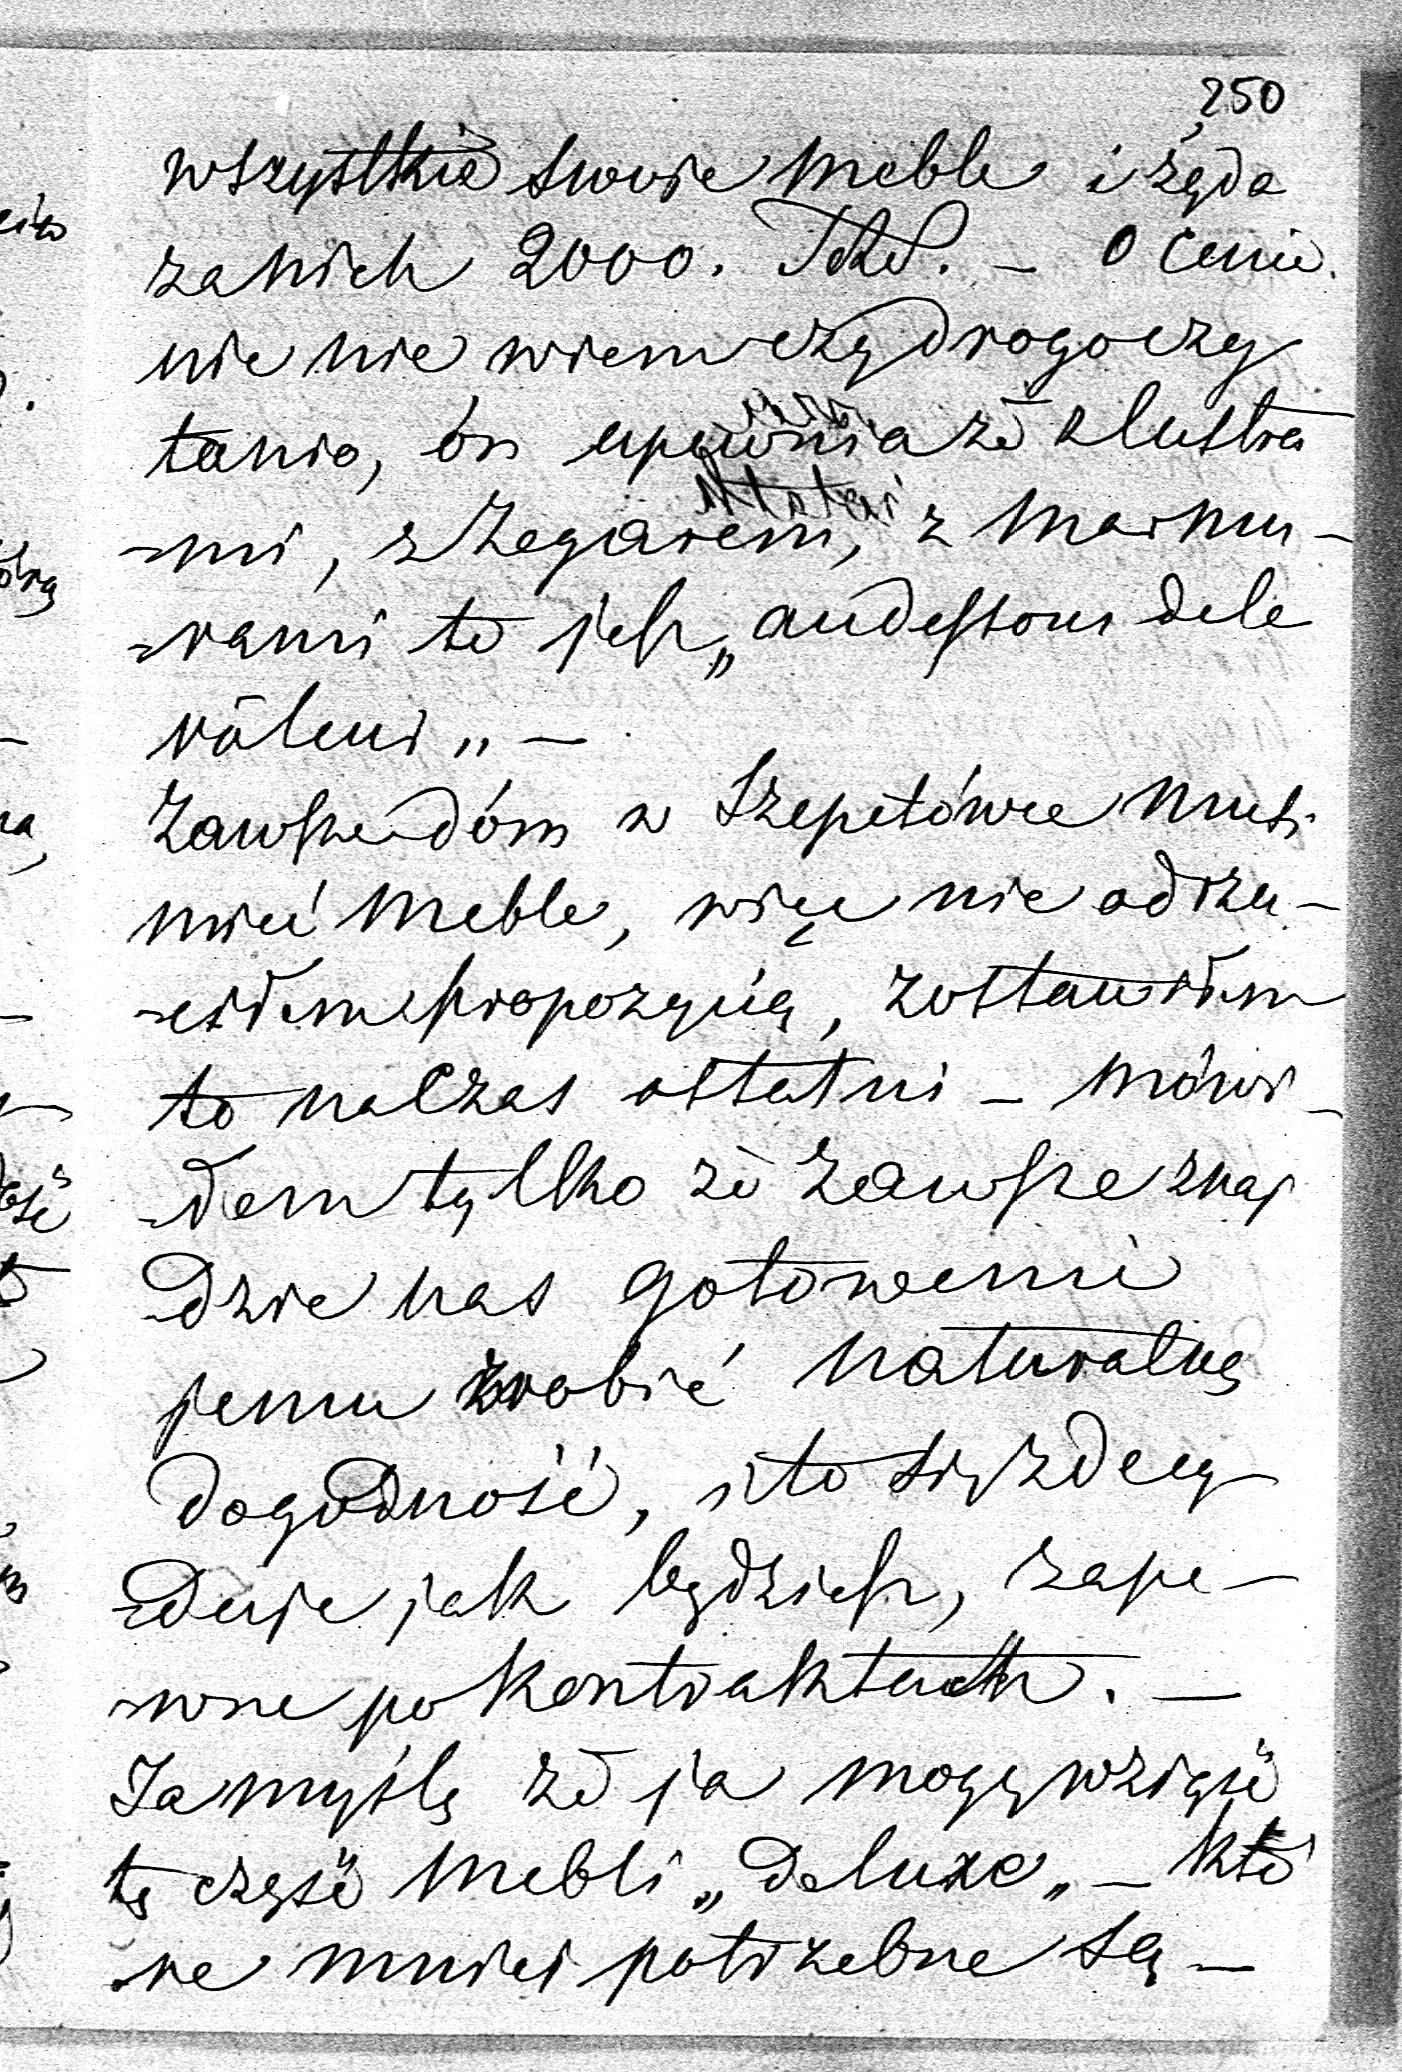 250
wszystkie swoje meble i żąda
za nich 2000. – O cenie
nie nie wiem czy drogo czy
tanio, ón upewnia że z lustra
-mi, z zegarem, z marmu-
-rami to jest „audessous de la
valeur” –
Zawsze dóm w Szepetówce musi
mieć meble, więc nie odrzu-
-ciłem propozycią, zostawiłem
to na czas ostatni – mówi-
-łem tylko że zawsze znaj
dzie nas gotowemi
jemu zrobić naturalną
dogodność, i to się zdecy
-duje jak będziesz, zape-
-wne po kontraktach. –
Ja myślę że ja mogę wziąść
tę część mebli „de luxe” – któ
-re mniej potrzebne są –